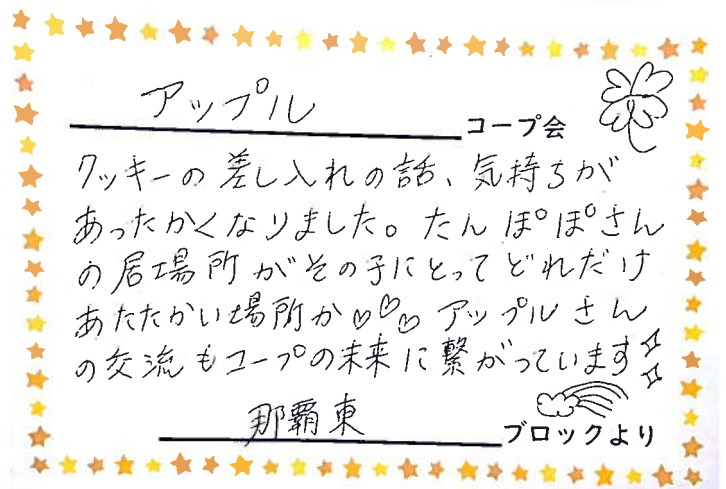 アップル コープ会
クッキーの差し入れの話、気持ちが
あったかくなりました。たんぽぽさん
の居場所がその子にとってどれだけ
あたたかい場所か♡♡♡アップルさん
の交流もコープの未来に繋がっています
那覇東 ブロックより